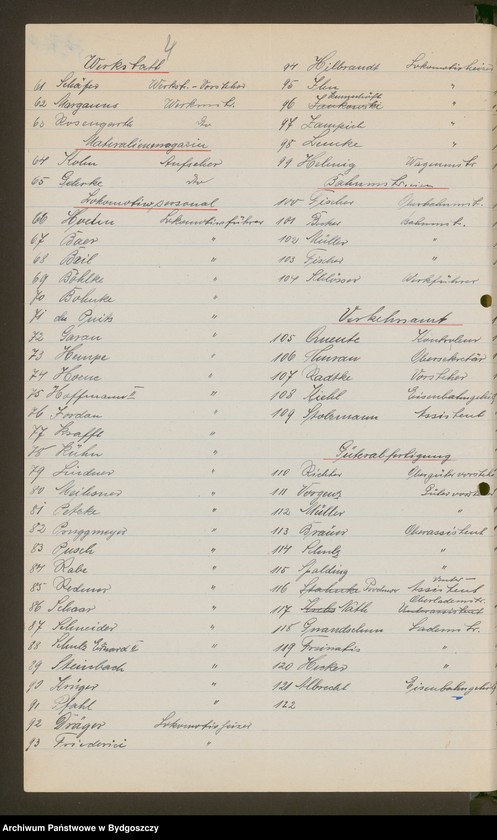 4
Werkstatt
61 Schäfer Werkst.-Vorsteher
62 Marganus Werkmstr.
63 Rosengarth Do
Materialienmagazin
64 Kohn Aufseher
65 Gehrke Do
Lokomotivpersonal
66 Lokomotivführer
67 Baer "
68 Bail "
69 Böhlke "
70 Bohnke "
71 du Puits "
72 Garau "
73 Hempe "
74 Hoene "
75 Hoffmann II "
76 Jordan "
77 Krafft "
78 Kühn "
79 Lindner "
80 Meissner "
81 Petzke "
82 Pruggmeyer "
83 Pusch "
84 Rabe "
85 Redmer "
86 Schaar "
87 Schneider "
88 Schulz Eduard II "
89 Steinbach "
90 Krüger "
91 Pfahl "
92 Dräger Lokomotivheizer
93 Friederici "
94 Hilbrandt Lokomotivheizer
95 "
96 Jankowski "
97 Lampich "
98 Lemcke "
99 Helmig Wagenmstr.
Bahnmstr.
100 Fischer Oberbahnmst.
101 Becker Bahnmst.
102 Müller "
103 Fischer "
104 Schlösser Werkführer
Verkehrsamt
105 Kontroleur
106 Obersekretär
107 Radtke Vorsteher
108 Kiehl Eisenbahngehilf
109 Stolzmann Assistent
Güterabfertigung
110 Richter Obergütervorsteh
111 Gütervorst
112 Müller "
113 Bräuer Oberassistent
114 Schulz "
115 Spalding "
Unter-
116 Assistent
Oberlademstr.
117 Unterassistent
118 Gnandschun Lademstr.
119 "
120 Hecker "
121 Albrecht Eisenbahngehilf
122
Archiwum Państwowe w Bydgoszczy